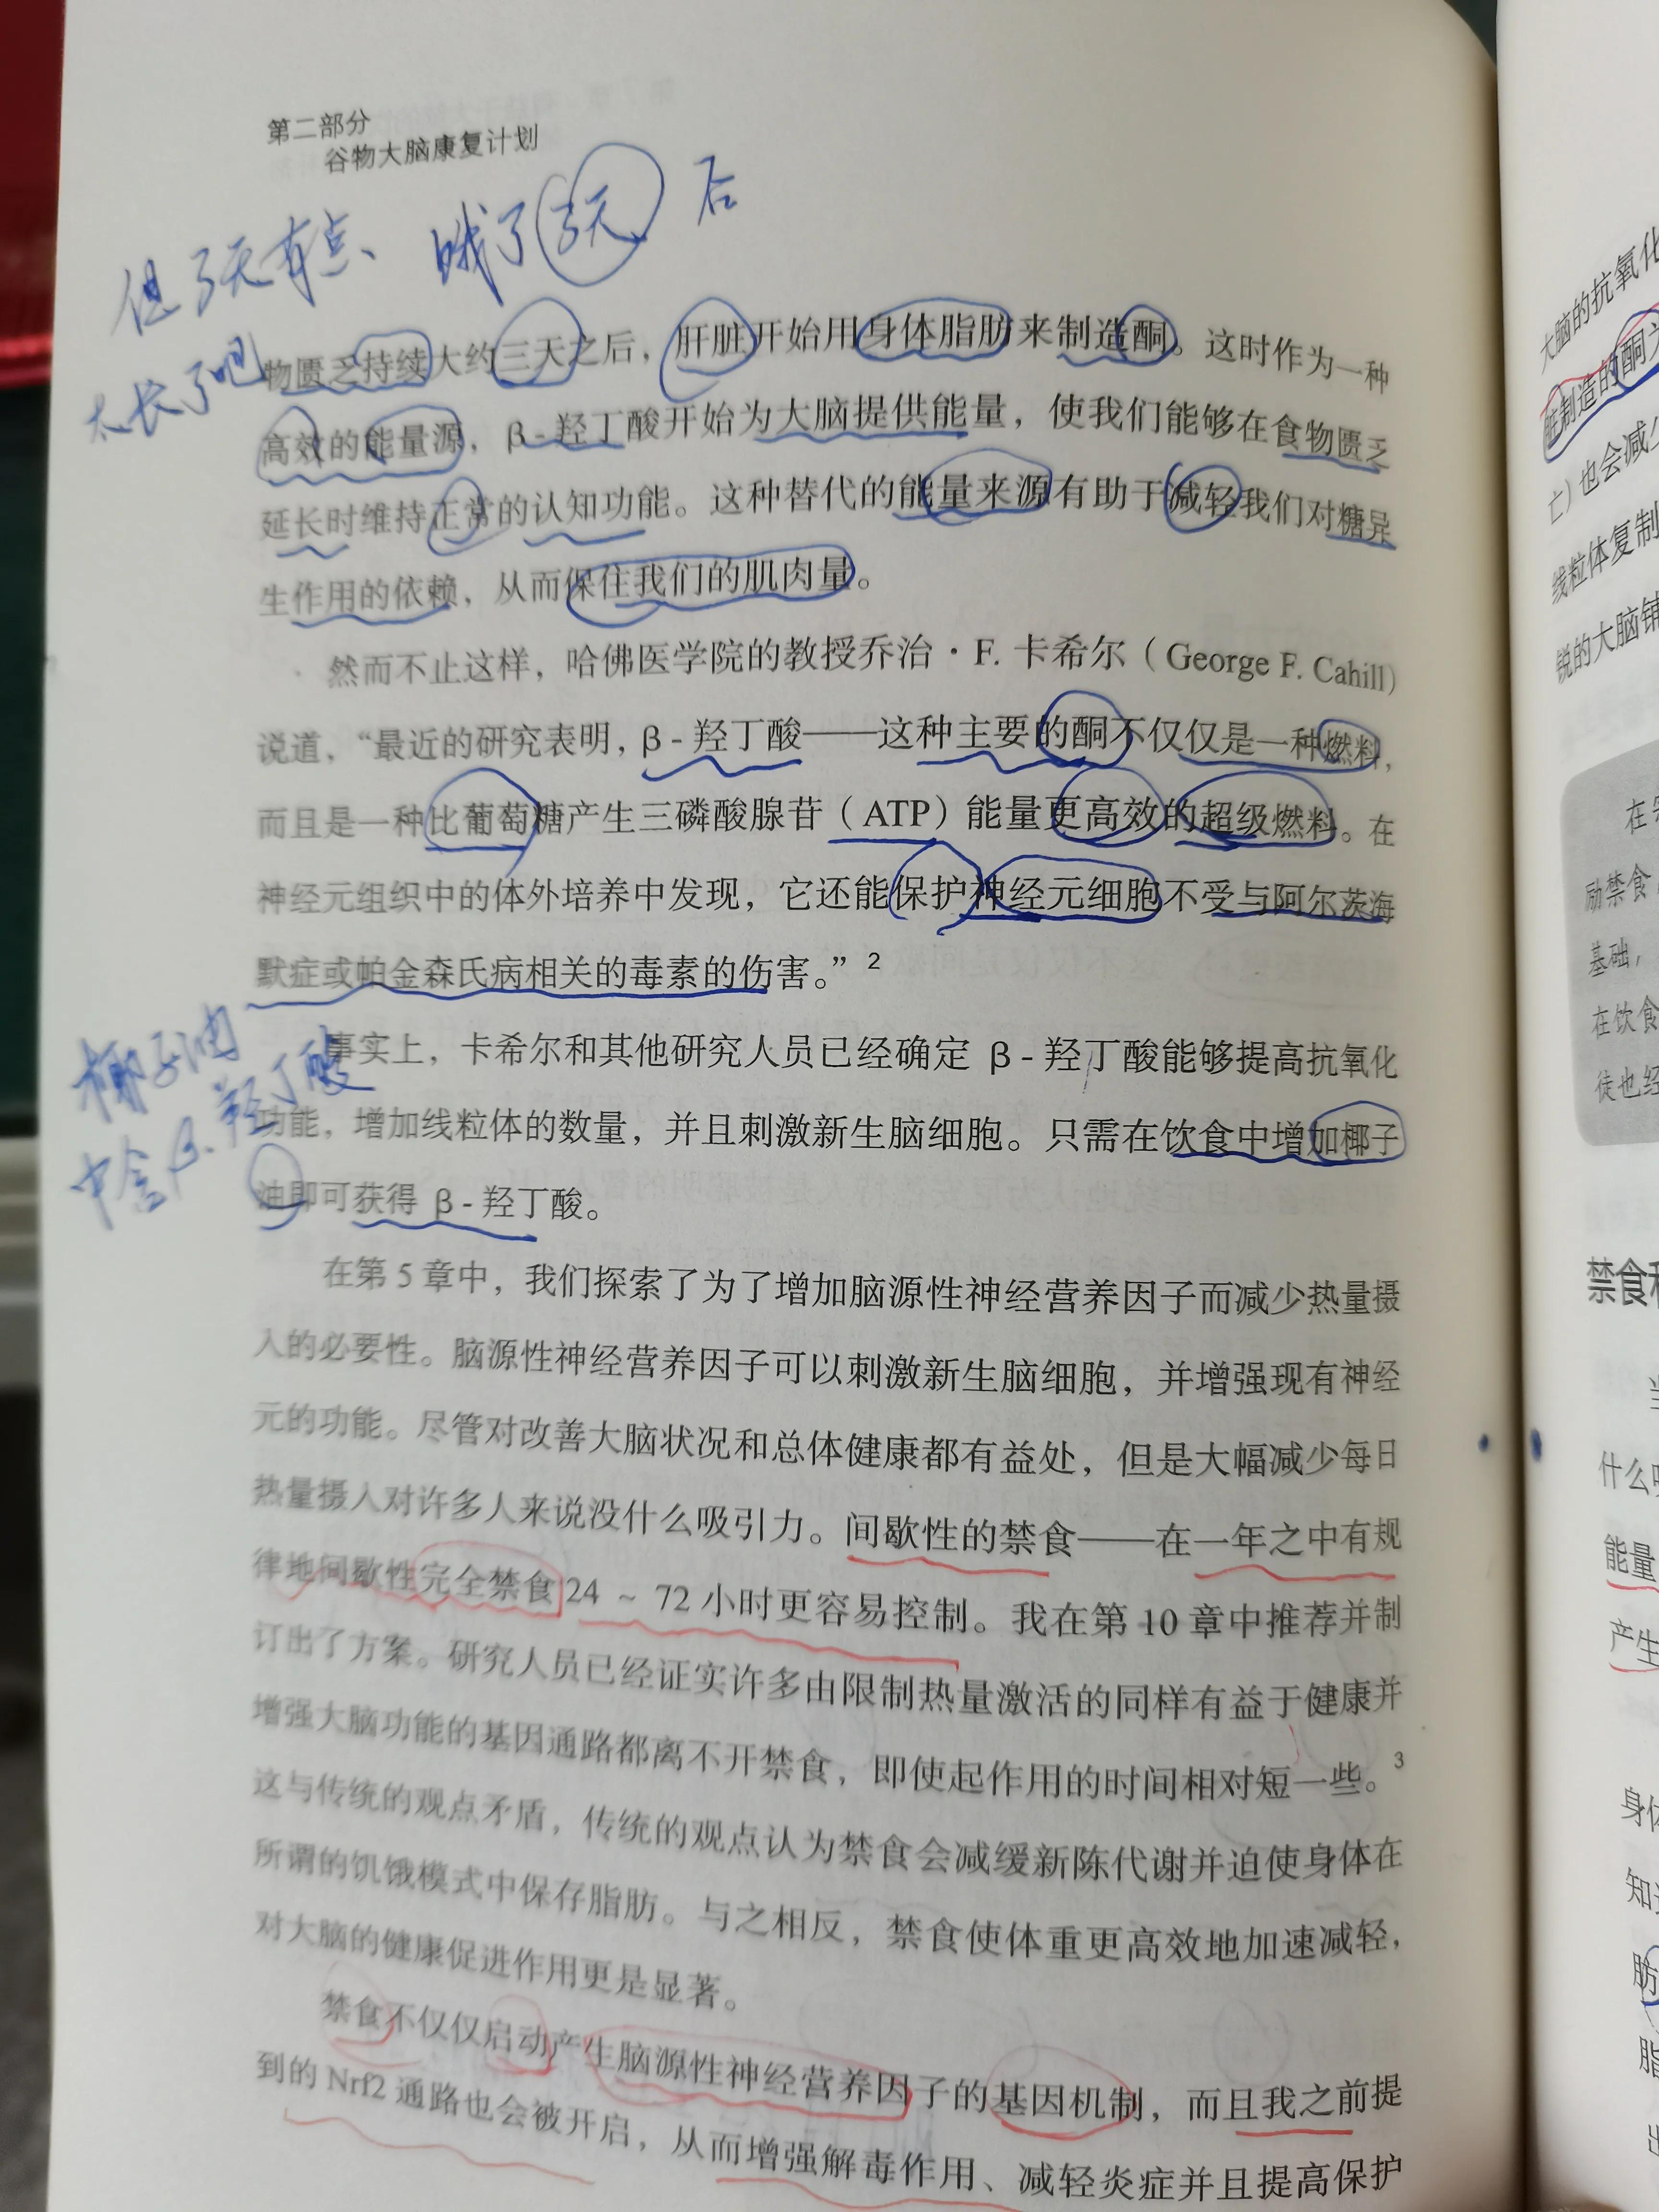 第二部分
谷物大脑康复计划
但3天有点、饿了3天后
太长了吧
物匮乏持续大约三天之后，肝脏开始用身体脂肪来制造酮。这时作为一种
高效的能量源，β-羟丁酸开始为大脑提供能量，使我们能够在食物匮乏
延长时维持正常的认知功能。这种替代的能量来源有助于减轻我们对糖异
生作用的依赖，从而保住我们的肌肉量。
然而不止这样，哈佛医学院的教授乔治·F. 卡希尔（George F. Cahill）
说道，“最近的研究表明，β-羟丁酸——这种主要的酮不仅仅是一种燃料，
而且是一种比葡萄糖产生三磷酸腺苷（ATP）能量更高效的超级燃料。在
神经元组织中的体外培养中发现，它还能保护神经元细胞不受与阿尔茨海
默症或帕金森氏病相关的毒素的伤害。”2
椰子油
中含β.羟丁酸
事实上，卡希尔和其他研究人员已经确定 β-羟丁酸能够提高抗氧化
功能，增加线粒体的数量，并且刺激新生脑细胞。只需在饮食中增加椰子
油即可获得 β-羟丁酸。
在第 5 章中，我们探索了为了增加脑源性神经营养因子而减少热量摄
入的必要性。脑源性神经营养因子可以刺激新生脑细胞，并增强现有神经
元的功能。尽管对改善大脑状况和总体健康都有益处，但是大幅减少每日
热量摄入对许多人来说没什么吸引力。间歇性的禁食——在一年之中有规
律地间歇性完全禁食 24 ~ 72 小时更容易控制。我在第 10 章中推荐并制
订出了方案。研究人员已经证实许多由限制热量激活的同样有益于健康并
增强大脑功能的基因通路都离不开禁食，即使起作用的时间相对短一些。3
这与传统的观点矛盾，传统的观点认为禁食会减缓新陈代谢并迫使身体在
所谓的饥饿模式中保存脂肪。与之相反，禁食使体重更高效地加速减轻，
对大脑的健康促进作用更是显著。
禁食不仅仅启动产生脑源性神经营养因子的基因机制，而且我之前提
到的 Nrf2 通路也会被开启，从而增强解毒作用、减轻炎症并且提高保护
大脑的抗氧化
脏制造的酮
亡）也会减少
线粒体复制
锐的大脑
励禁食
基础，
在饮食
徒也经
禁食
什么
能量
产生
身体
脂